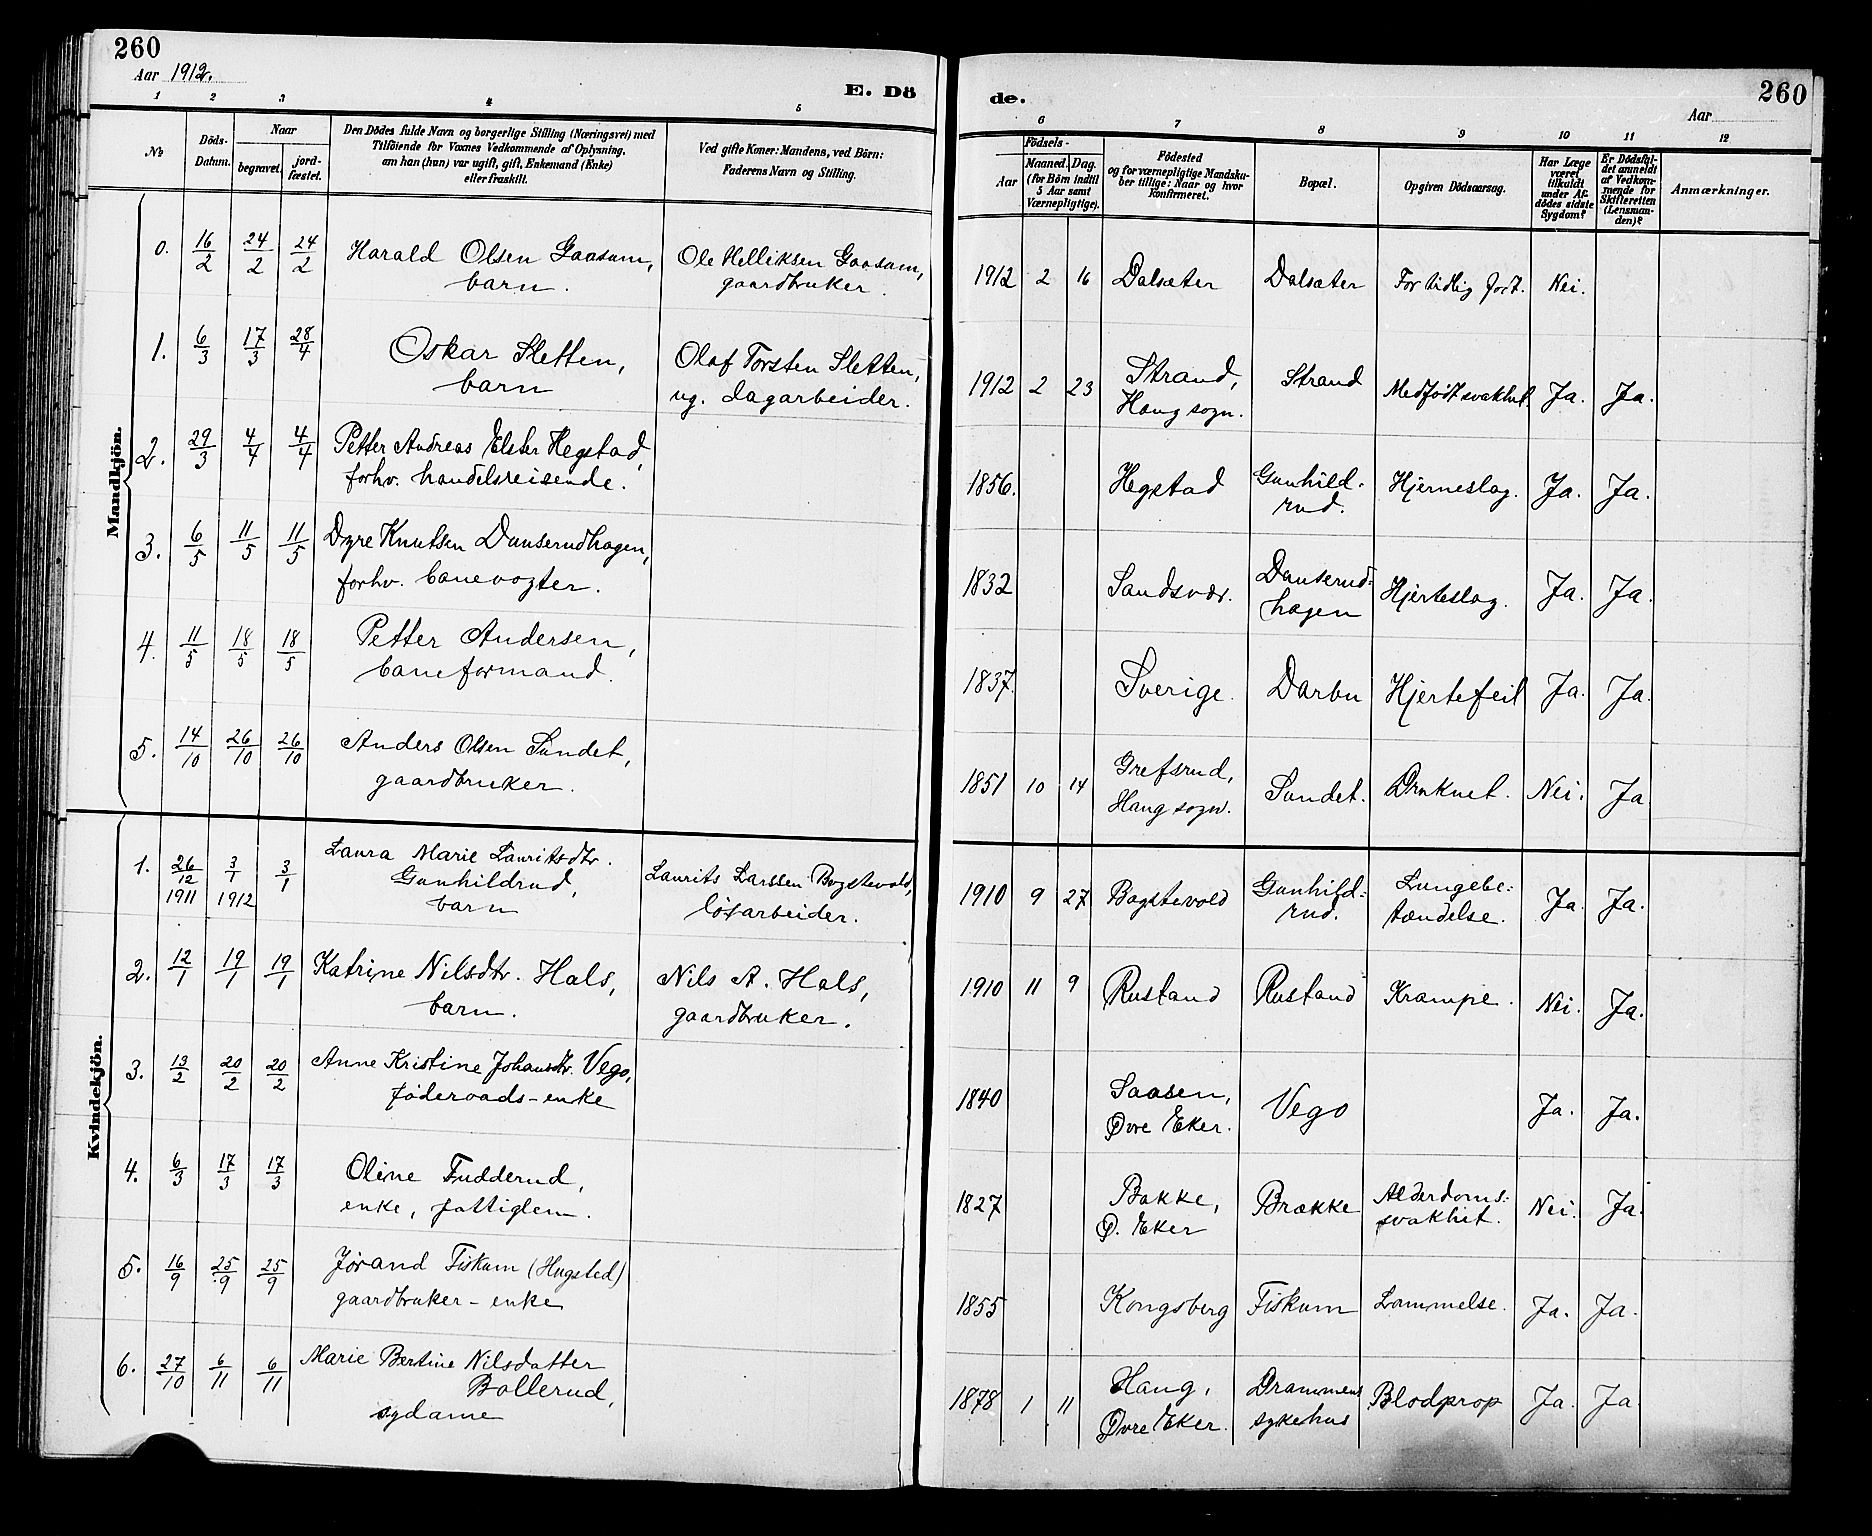 260
Aar 1912.
E. Dö
de.
Aar
260
1 2 3 4 5
6 7 8 9 10 11 12
No
Döds-
Datum.
Naar
begravet.
jord-
fæstet.
Den Dödes fulde Navn og borgerlige Stilling (Næringsvei) med
Tilföiende for Voxnes Vedkommende af Oplysning,
om han (hun) var ugift, gift, Enkemand (Enke)
eller fraskilt.
Ved gifte Koner: Mandens, ved Börn:
Faderens Navn og Stilling.
Födsels-
Aar
Maaned.
Dag.
(for Börn indtil
5 Aar samt
Værnepligtige).
Födested
og for værnepligtige Mandska-
ber tillige: Naar og hvor
konfirmeret.
Bopæl.
Opgiven Dödsaarsag.
Har Læge
været
tilkaldt
under Af-
dödes sidste
Sygdom?
Er Dödsfal-
det anmeldt
af Vedkom-
mende for
Skifteretten
(Lensman-
den)?
Anmærkninger.
Mandkjön.
0. 16/2 24/2 24/2 Harald Olsen Gaasam, Ole Helliksen Gaasam, 1912 2 16 Dalsæter Dalsæter For tidlig født. Nei.
barn. gaardbruker.
1. 6/3 17/3 28/4 Oskar Sletten, Olaf Torsten Sletten, 1912 2 23 Strand, Strand Medfødt svakhet. Ja. Ja.
barn ug. dagarbeider. Haug sogn.
2. 29/3 4/4 4/4 Petter Andreas Elster Hegstad, 1856. Hegstad Gunhild- Hjerneslag. Ja. Ja.
forhv. handelsreisende. rud.
3. 6/5 11/5 11/5 Dyre Knutsen Dunserudhagen, 1832 Sandsvær. Dunserud- Hjerteslag. Ja. Ja.
forhv. banevogter. hagen
4. 11/5 18/5 18/5 Petter Andersen, 1837. Sverige. Darbu Hjertefeil Ja. Ja.
baneformand.
5. 14/10 26/10 26/10 Anders Olsen Sundet, 1851 10 14 Grefsrud, Sundet. Druknet. Nei. Ja
gaardbruker. Haug sogn.
Kvindekjön.
1. 26/12 3/1 3/1 Laura Marie Lauritsdtr. Laurits Larssen Bogstevold, 1910 9 27 Bogstevold Gunhild- Lungebe- Ja Ja.
1911 1912 Gunhildrud, løsarbeider. rud. tændelse.
barn
2. 12/1 19/1 19/1 Katrine Nilsdtr. Hals, Nils A. Hals, 1910 11 9 Rustand Rustand Krampe. Nei. Ja.
barn. gaardbruker.
3. 13/2 20/2 20/2 Anne Kristine Johansdtr. Vego, 1840 Saasen, Vego Ja. Ja.
føderaads-enke Øvre Eker.
4. 6/3 17/3 17/3 Oline Fudderud, 1827 Bakke, Brække Alderdoms- Nei. Ja.
enke, fattiglem. Ø. Eker svakhet.
5. 16/9 25/9 25/9 Jørand Fiskum (Hugsted) 1855 Kongsberg Fiskum Lammelse. Ja. Ja.
gaardbruker-enke
6. 27/10 6/11 6/11 Marie Bertine Nilsdatter 1878 1 11 Haug, Drammens Blodprop Ja. Ja.
Bollerud, Øvre Eker. sykehus
sydame